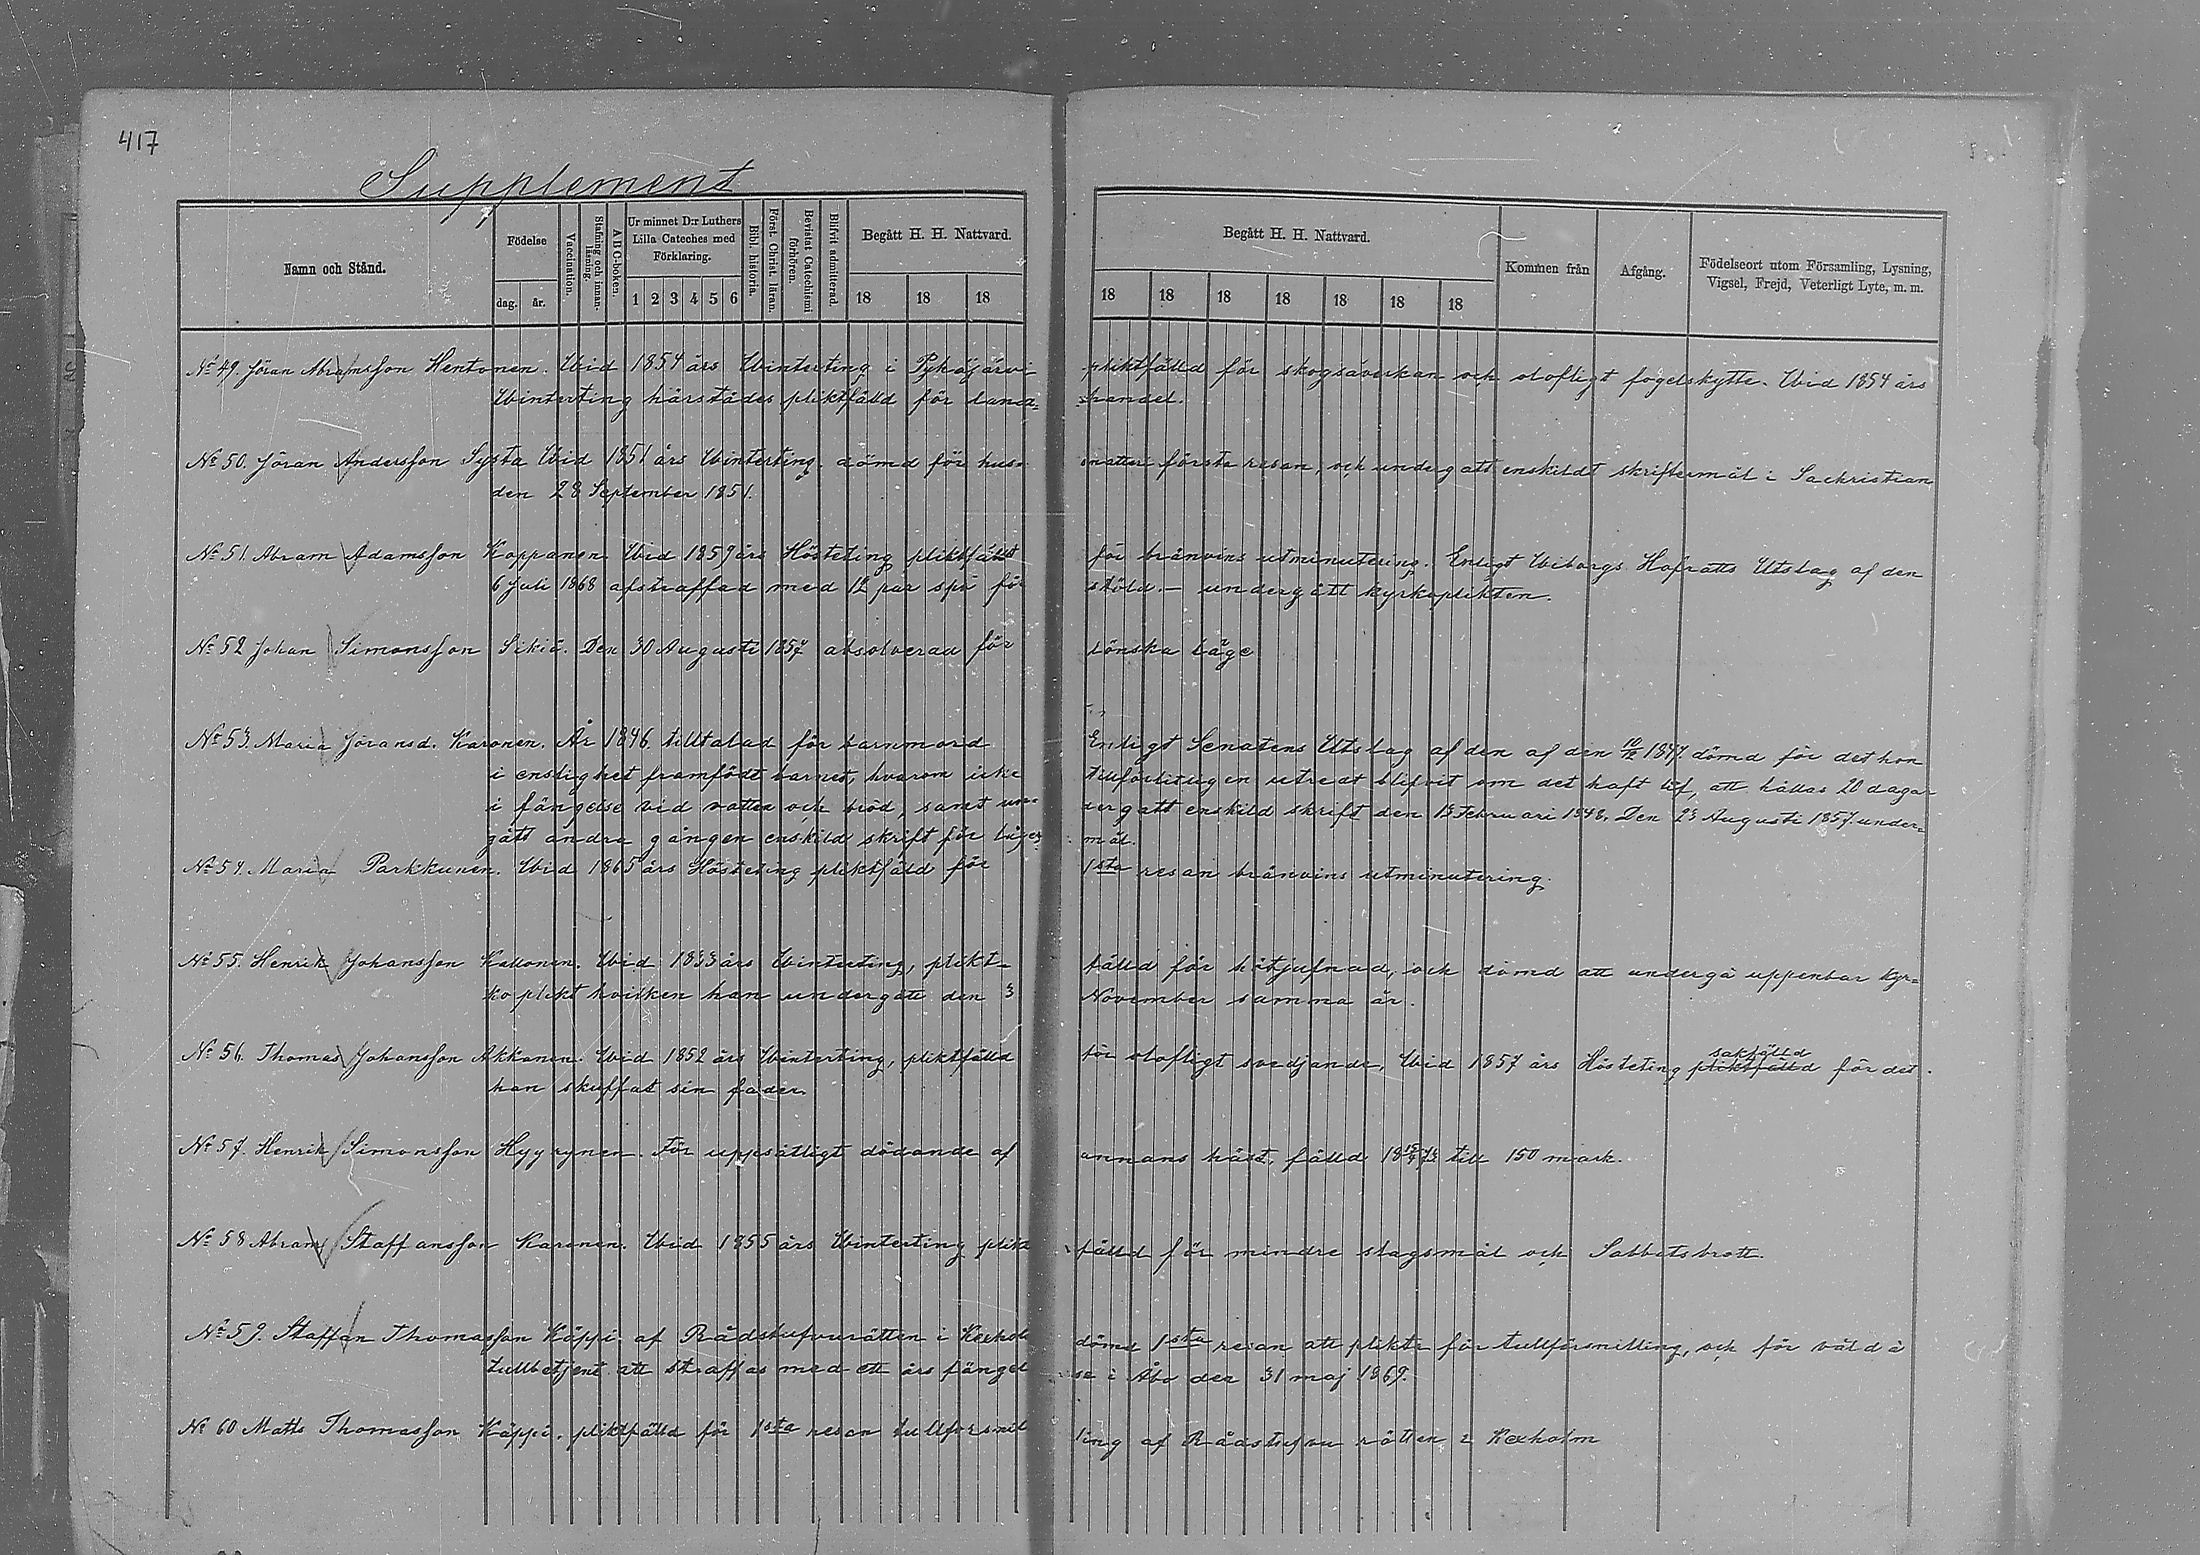 417
Supplement
Namn och Stånd.
Födelse
dag. år.
Vaccination.
Stafning och innanläsning.
A B C-boken.
Ur minnet D:r Luthers Lilla Cateches med Förklaring.
1 2 3 4 5 6
Bibl. historia.
Först. Christ. läran.
Bevistat Catechismi förhören.
Blifvit admitterad.
Begått H. H. Nattvard.
18 18 18
Begått H. H. Nattvard.
18 18 18 18 18 18 18
Kommen från
Afgång.
Födelseort utom Församling, Lysning, Vigsel, Frejd, Veterligt Lyte, m. m.
No 49. Jöran Abramsson Hentonen. Vid 1854 års Vinterting i Pyhäjärvi pliktfälld för skogsåverkan och olofligt fogelskytte. Vid 1854 års
Vinterting härstädes pliktfälld för landhandel.
No 50. Jöran Andersson Systa Vid 1851 års Vinterting dömd för husnatten första resan, och undergått enskildt skriftermål i Sackristian
den 28 September 1851.
No 51. Abram Adamsson Koppanen Vid 1859 års Hösteting pliktfälld för bränvins utminutering. Enligt Viborgs Hofrätts Utslag af den
6 Juli 1868 afstraffad med 12 par spö för stöld. — undergått kyrkoplikten.
No 52 Johan Simonsson Sikiä. Den 30 Augusti 1857 absolverad för lönska läge
No 53. Maria Jöransd. Karonen. År 1846 tilltalad för barnmord Enligt Senatens Utslag af den af den 10/12 1847. dömd för det hon
i enslighet framfödt barnet, hvarom icke tillförlitligen utredt blifvit om det haft lif, att hållas 20 dagar
i fängelse vid vatten och bröd, samt undergått enskild skrift den 13 Februari 1848. Den 23 Augusti 1857. under=
gått andra gången enskild skrift för lägersmål.
No 54. Maria Parkkunen. Vid 1865 års Hösteting pliktfälld för 1sta resan bränvins utminutering.
No 55. Henrik Johansson Kallonen. Vid 1833 års Vinterting, pliktfälld för hötjufnad, och dömd att undergå uppenbar kyr=
koplikt hvilken han undergått den 3 November samma år.
No 56. Thomas Johansson Akkanen. Vid 1852 års Vinterting, pliktfälld för olofligt svedjande, Vid 1857 års Hösteting pliktfälld sakfälld för det
han skuffat sin fader.
No 57. Henrik Simonsson Hyyrynen. För uppsåtligt dödande af annans häst, fälld 18 15/9 73 till 150 mark.
No 58 Abram Staffansson Karonen. Vid 1855 års Vinterting pliktfälld för mindre slagsmål och Sabbatsbrott.
No 59. Staffan Thomasson Käppi. af Rådstufvurätten i Kexholm dömd 1sta resan att plikta för tullförsnilling, och för våld å
tullbetjent att straffas med ett års fängelse i Åbo den 31 maj 1869.
No 60 Matts Thomasson Käppi. pliktfälld för 1sta resan tullförsnilling af Rådstufvu rätten i Kexholm